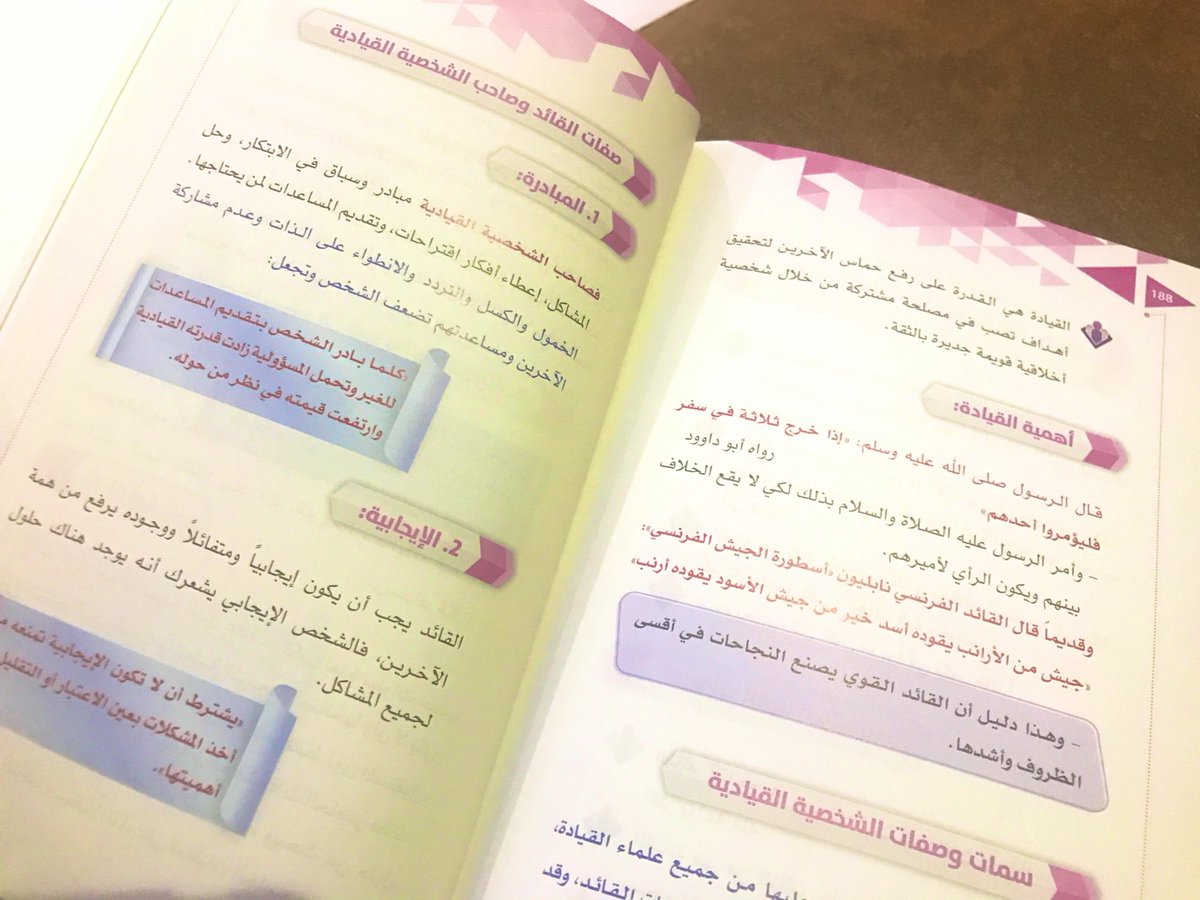 188
القيادة هي القدرة على رفع حماس الآخرين لتحقيق
أهداف تصب في مصلحة مشتركة من خلال شخصية
أخلاقية قويمة جديرة بالثقة.
أهمية القيادة:
قال الرسول صلى الله عليه وسلم: «إذا خرج ثلاثة في سفر
فليؤمروا أحدهم» رواه أبو داوود
- وأمر الرسول عليه الصلاة والسلام بذلك لكي لا يقع الخلاف
بينهم ويكون الرأي لأميرهم.
وقديماً قال القائد الفرنسي نابليون «أسطورة الجيش الفرنسي»:
«جيش من الأرانب يقوده أسد خير من جيش الأسود يقوده أرنب»
- وهذا دليل أن القائد القوي يصنع النجاحات في أقسى
الظروف وأشدها.
سمات وصفات الشخصية القيادية
من جميع علماء القيادة،
القائد، وقد
صفات القائد وصاحب الشخصية القيادية
1. المبادرة:
فصاحب الشخصية القيادية مبادر وسباق في الابتكار، وحل
المشاكل، إعطاء أفكار اقتراحات، وتقديم المساعدات لمن يحتاجها.
الخمول والكسل والتردد والانطواء على الذات وعدم مشاركة
الآخرين ومساعدتهم تضعف الشخص وتجعل:
«كلما بادر الشخص بتقديم المساعدات
للغير وتحمل المسؤولية زادت قدرته القيادية
وارتفعت قيمته في نظر من حوله.
2. الإيجابية:
القائد يجب أن يكون إيجابياً ومتفائلاً ووجوده يرفع من همة
الآخرين، فالشخص الإيجابي يشعرك أنه يوجد هناك حلول
لجميع المشاكل.
«يشترط أن لا تكون الإيجابية تمنعه
أخذ المشكلات بعين الاعتبار أو التقليل
أهميتها».